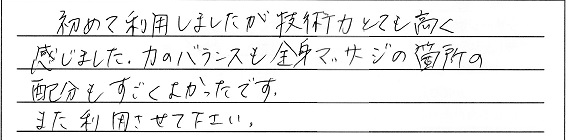 初めて利用しましたが技術力とても高く
感じました。力のバランスも全身マッサジの箇所の
配分もすごくよかったです。
また利用させて下さい。